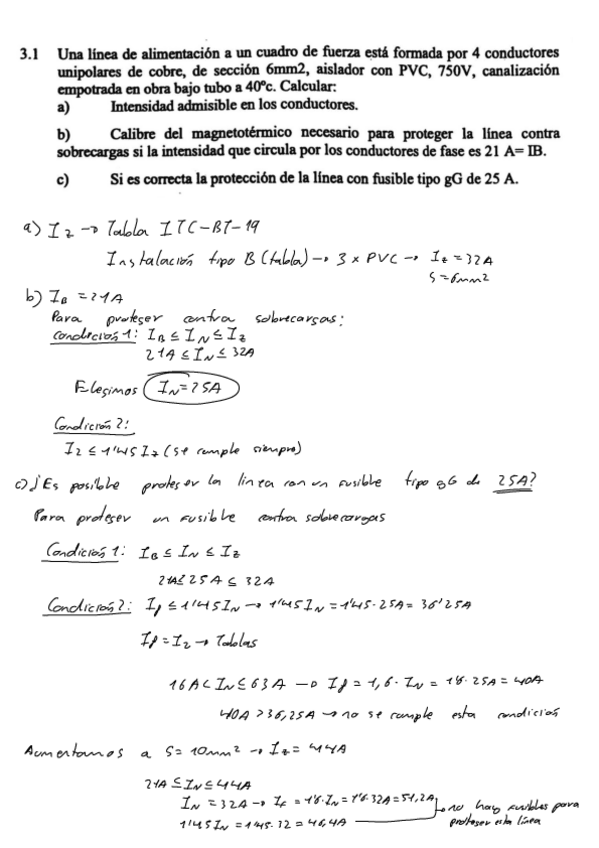 3.1 Una línea de alimentación a un cuadro de fuerza está formada por 4 conductores
unipolares de cobre, de sección 6mm2, aislador con PVC, 750V, canalización
empotrada en obra bajo tubo a 40ºc. Calcular:
a) Intensidad admisible en los conductores.
b) Calibre del magnetotérmico necesario para proteger la línea contra
sobrecargas si la intensidad que circula por los conductores de fase es 21 A= IB.
c) Si es correcta la protección de la línea con fusible tipo gG de 25 A.
a) Iz → Tabla ITC-BT-19
Instalación tipo B (tabla) → 3 x PVC → Iz = 32A
S = 6mm2
b) IB = 21A
Para proteger contra sobrecargas:
Condición 1: IB ≤ IN ≤ Iz
21A ≤ IN ≤ 32A
Elegimos IN = 25A
Condición 2:
I2 ≤ 1'45 Iz (se cumple siempre)
c) ¿Es posible proteger la línea con un fusible tipo gG de 25A?
Para proteger un fusible contra sobrecargas
Condición 1: IB ≤ IN ≤ Iz
21A ≤ 25A ≤ 32A
Condición 2: If ≤ 1'45 IN → 1'45 IN = 1'45 · 25A = 36'25A
If = I2 → Tablas
16A < IN ≤ 63A → If = 1,6 · IN = 1'6 · 25A = 40A
40A > 36,25A → no se cumple esta condición
Aumentamos a S = 10mm2 → Iz = 44A
21A ≤ IN ≤ 44A
IN = 32A → If = 1'6 · IN = 1'6 · 32A = 51,2A → no hay fusibles para
1'45 IN = 1'45 · 32 = 46,4A proteger esta línea